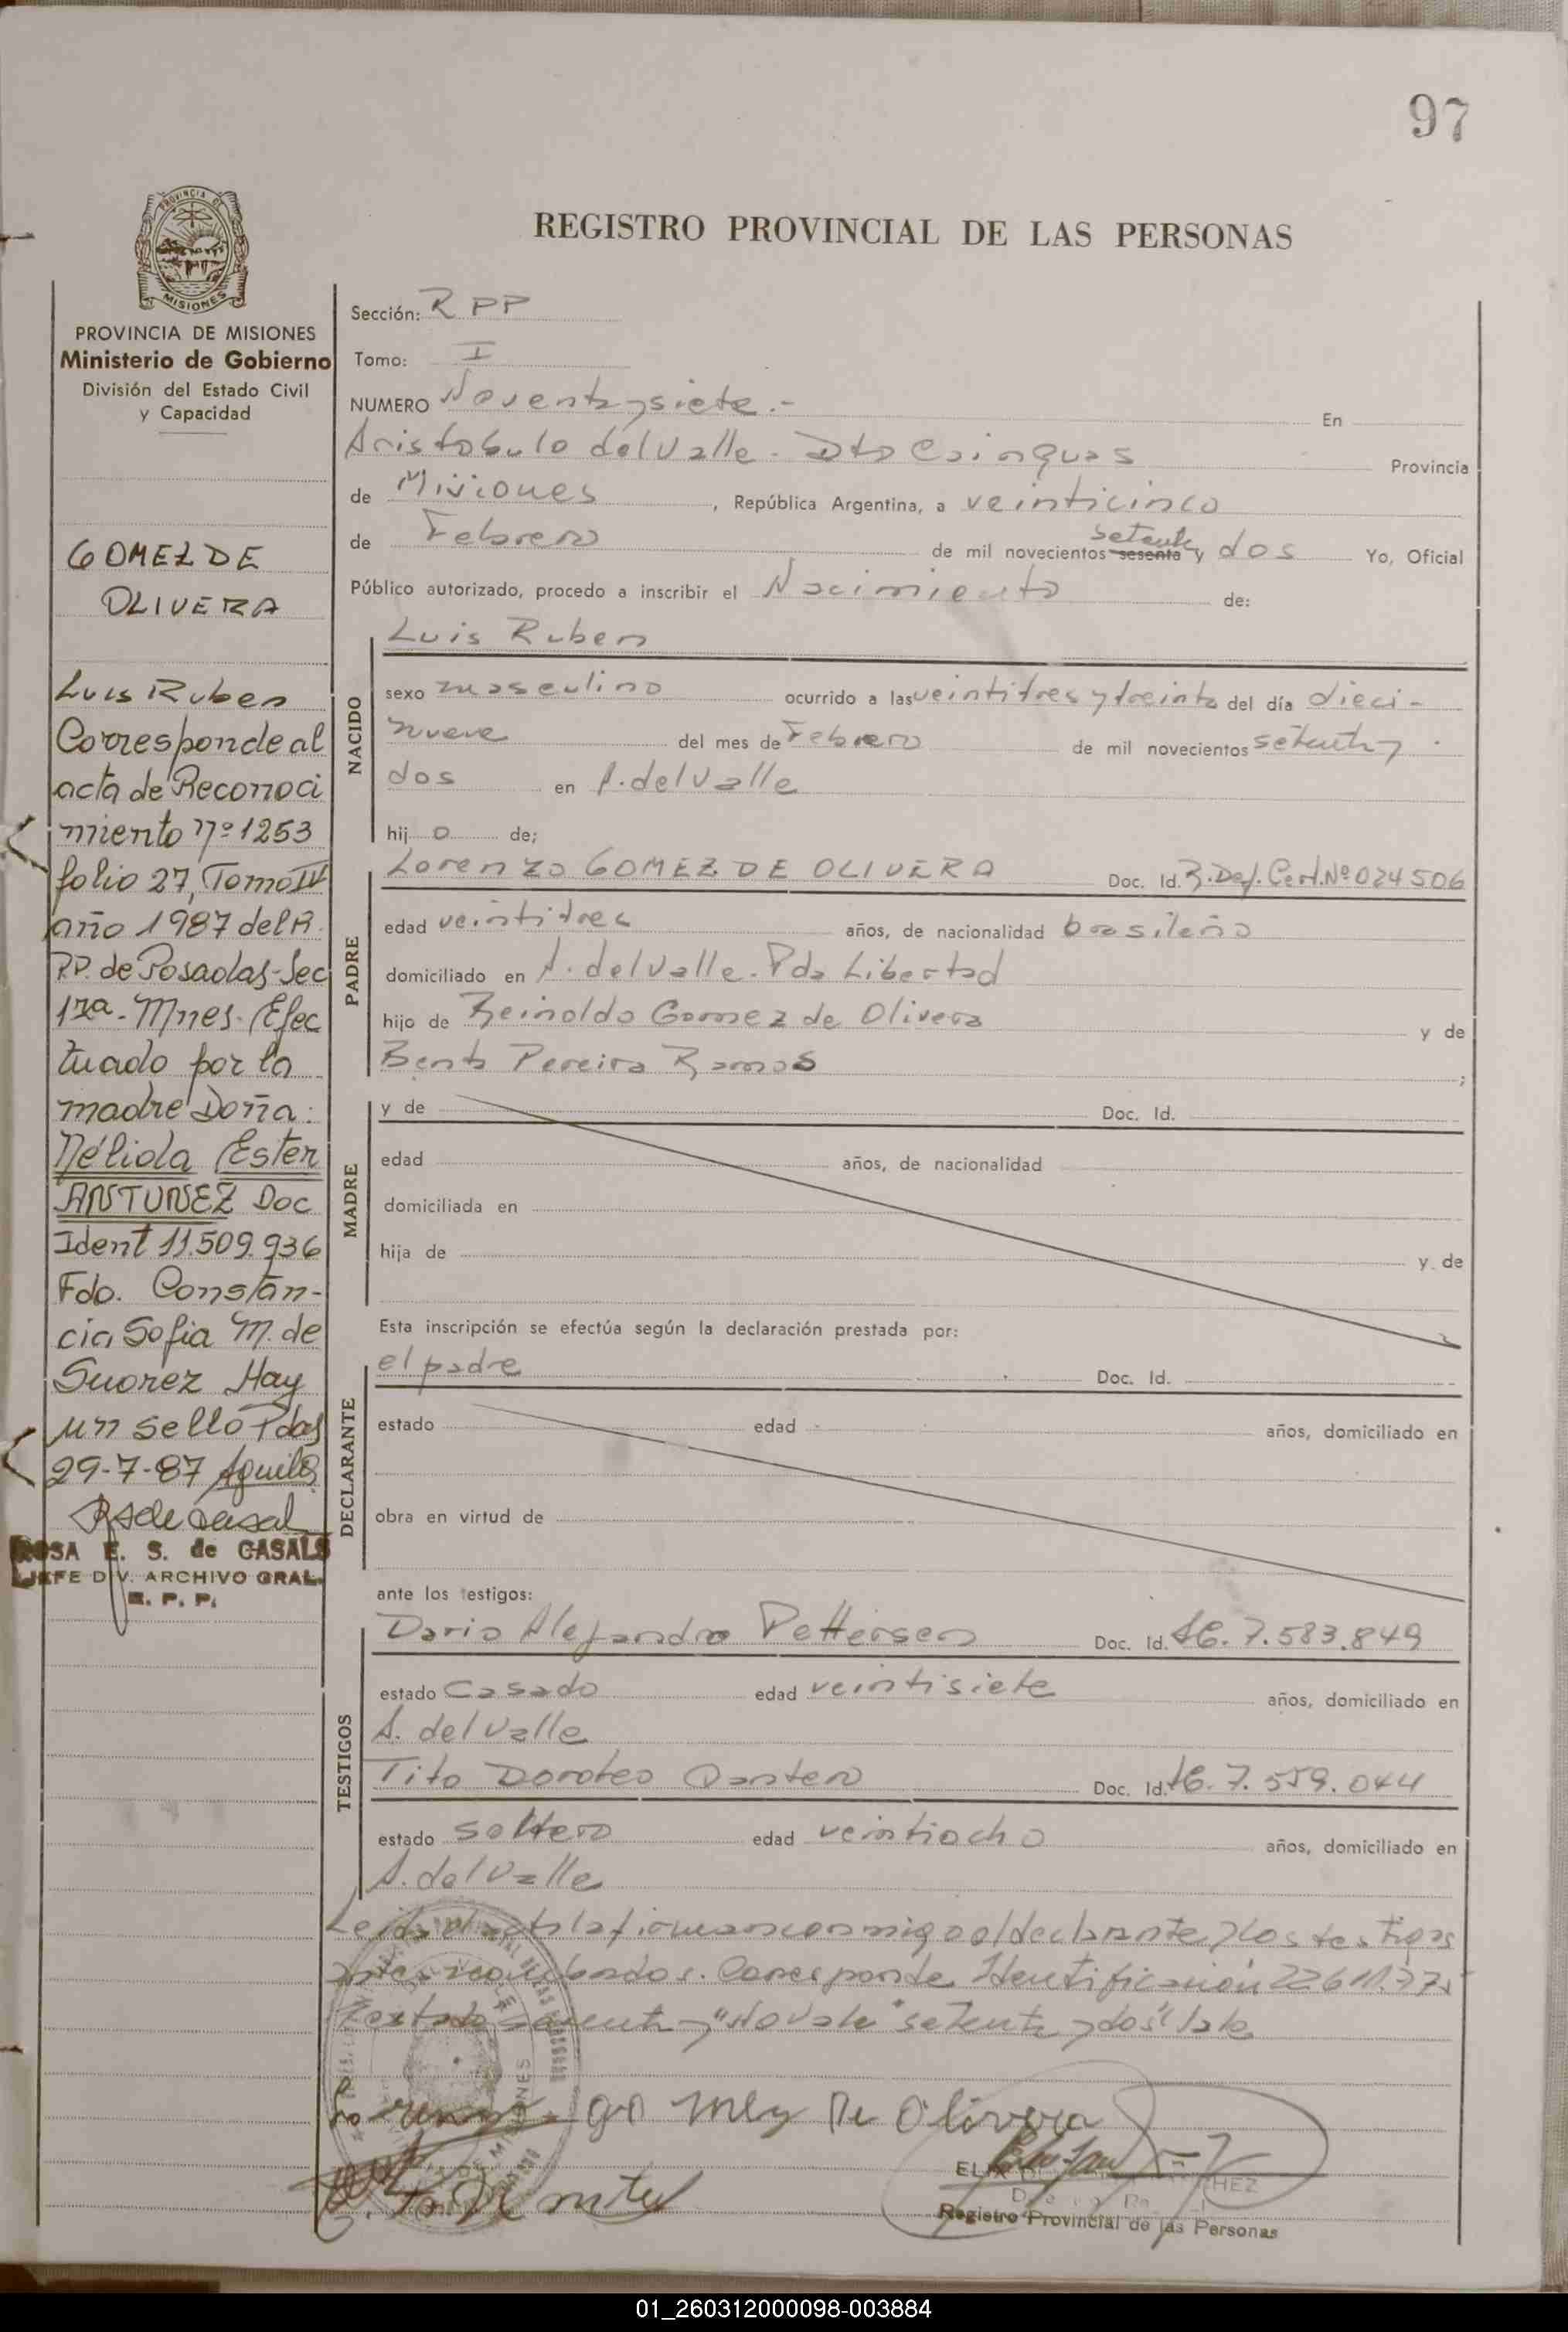 97
REGISTRO PROVINCIAL DE LAS PERSONAS
PROVINCIA DE
MISIONES
PROVINCIA DE MISIONES
Ministerio de Gobierno
División del Estado Civil
y Capacidad
GOMEZ DE
OLIVERA
Luis Ruben
Corresponde al
acta de Reconoci
miento nº 1253
folio 27, Tomo IV
año 1987 del R.
P.P. de Posadas-Sec
1ra - Mnes. Efec
tuado por la
madre Doña:
Nélida Ester
ANTUNEZ Doc
Ident 11.509.936
Fdo. Constan-
cia Sofia M. de
Suarez Hay
un sello Pdas
29-7-87
ROSA E. S. de CASALS
JEFE DIV. ARCHIVO GRAL.
R. P. P.
Sección: R PP
Tomo: I
NUMERO Noventa y siete.- En
Aristobulo del Valle - Dto Cainguas Provincia
de Misiones, República Argentina, a veinticinco
de Febrero de mil novecientos sesenta setenta y dos Yo, Oficial
Público autorizado, procedo a inscribir el Nacimiento de:
NACIDO
Luis Ruben
sexo masculino ocurrido a las veintitres y treinta del día dieci-
nueve del mes de Febrero de mil novecientos setenta y
dos en A. del Valle
hij o de;
PADRE
Lorenzo GOMEZ DE OLIVERA Doc. Id. Cert. Nº 024506
edad veintitres años, de nacionalidad brasileño
domiciliado en A. del Valle. Pda Libertad
hijo de Reinoldo Gomez de Olivera y de
Benta Pereira Ramos ;
MADRE
y de Doc. Id.
edad años, de nacionalidad
domiciliada en
hija de y de
Esta inscripción se efectúa según la declaración prestada por:
DECLARANTE
el padre Doc. Id.
estado edad años, domiciliado en
obra en virtud de
ante los testigos:
TESTIGOS
Dario Alejandro Pettersen Doc. Id. 7.583.849
estado Casado edad veintisiete años, domiciliado en
A. del Valle
Tito Doroteo Doc. Id. 7.559.044
estado soltero edad veintiocho años, domiciliado en
A. del Valle
Leida el acta la firman conmigo el declarante y los testigos
antes nombrados. Corresponde Identificación
Testado sesenta y "No vale" setenta y dos" vale
Lorenzo go mez De olivera
Registro Provincial de las Personas
01_260312000098-003884